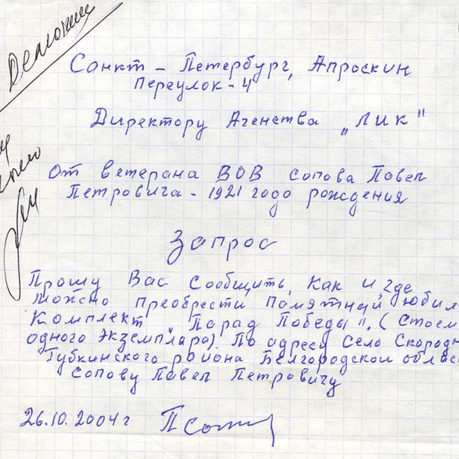 Санкт-Петербург, Апроскин
Переулок-4
Директору Агенства „ЛИК"
От ветерана ВОВ Сопова Павел
Петровича - 1921 года рождения
Запрос
Прошу Вас сообщить, как и где
можно преобрести памятный юбил
комплект „Парад Победы". (Стоем
одного экземпляра). По адресу село Скородн
Губкинского района Белгородской облас
Сопову Павел Петровичу
26.10.2004г